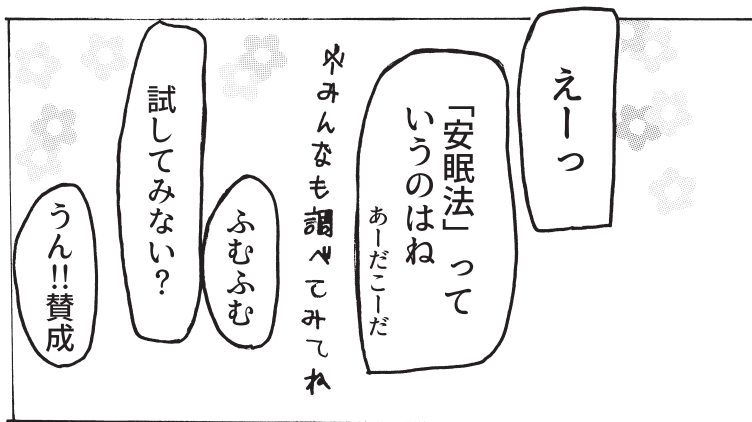 えーっ
「安眠法」って
いうのはね
あーだこーだ
※みんなも調べてみてね
ふむふむ
試してみない?
うん!!賛成